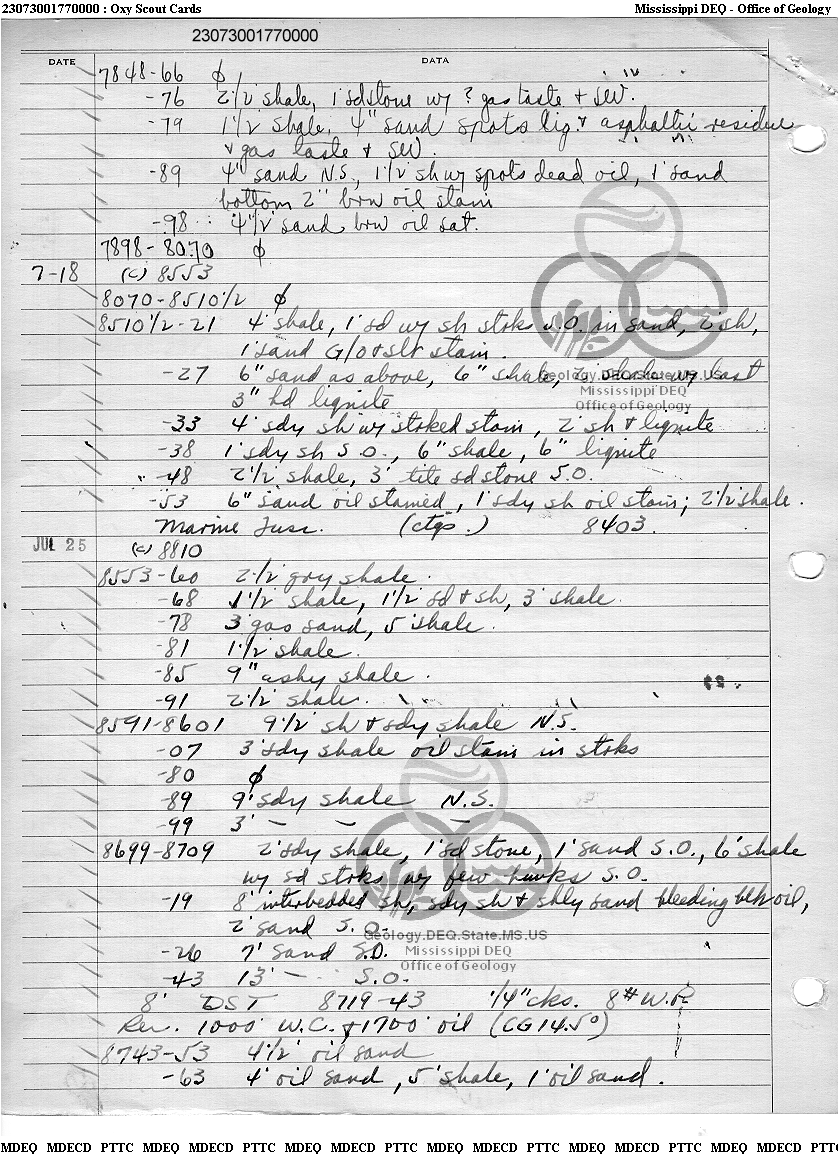 23073001770000 : Oxy Scout Cards
Mississippi DEQ - Office of Geology
23073001770000
DATE DATA
7848-66 ϕ
-76 2½' shale, 1' sdstone w/ ? gas taste & SW.
-79 1½' shale, 4" sand spots lig. & asphaltic residue
& gas taste & SW.
-89 4' sand N.S., 1½' sh w/ spots dead oil, 1' sand
bottom 2" brn oil stain
-98 4½' sand brn oil sat.
7898-8070 ϕ
7-18 (c) 8553
8070-8510½ ϕ
8510½-21 4' shale, 1' sd w/ sh stks S.O. in sand, 2' sh,
1' sand G/O & slt stain.
-27 6" sand as above, 6" shale, 2' shale w/ last
3" hd lignite
-33 4' sdy sh w/ stked stain, 2' sh & lignite
-38 1' sdy sh S.O., 6" shale, 6" lignite
-48 2½' shale, 3' tite sdstone S.O.
-53 6" sand oil stained, 1' sdy sh oil stain, 2½' shale.
Marine Tusc. (ctgs.) 8403.
JUL 25 (c) 8810
8553-60 2½' gry shale.
-68 1½' shale, 1½' sd & sh, 3' shale.
-78 3' gas sand, 5' shale.
-81 1½' shale.
-85 9" ashy shale.
-91 2½' shale.
8591-8601 9½' sh & sdy shale N.S.
-07 3' sdy shale oil stain in stks
-80 ϕ
-89 9' sdy shale N.S.
-99 3' - - -
8699-8709 2' sdy shale, 1' sdstone, 1' sand S.O., 6' shale
w/ sd stks w/ few hunks S.O.
-19 8' interbedded sh, sdy sh & shly sand bleeding blk oil,
2' sand S.O.
-26 7' sand S.O.
-43 13' - S.O.
8' DST 8719-43 ¼" cks. 8# W.P.
Rev. 1000' W.C. & 1700' oil (CG 14.5°)
8743-53 4½' oil sand
-63 4' oil sand, 5' shale, 1' oil sand.
Geology.DEQ.State.MS.US
Mississippi DEQ
Office of Geology
Geology.DEQ.State.MS.US
Mississippi DEQ
Office of Geology
MDEQ MDECD PTTC MDEQ MDECD PTTC MDEQ MDECD PTTC MDEQ MDECD PTTC MDEQ MDECD PTTC MDEQ MDECD PTTC